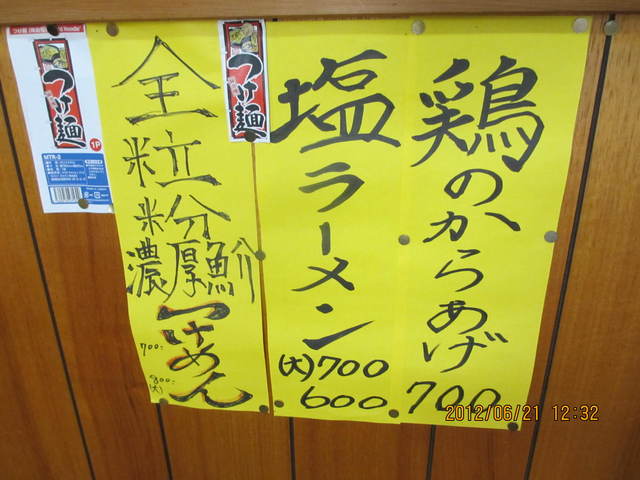 鶏のからあげ
700
塩ラーメン
(大)700
600
全粒粉
濃厚魚介
つけめん
700-
800-
(大)
つけ麺
つけ麺
1P
MTR-2
2012/06/21 12:32